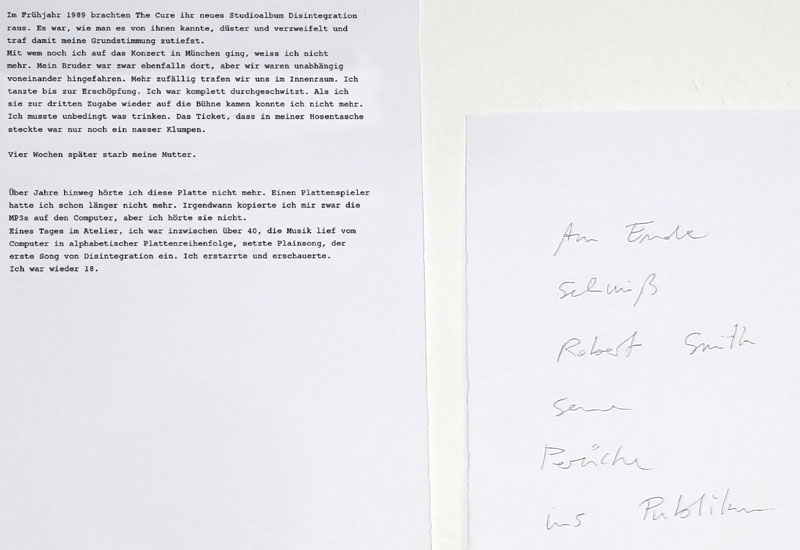 Im Frühjahr 1989 brachten The Cure ihr neues Studioalbum Disintegration
raus. Es war, wie man es von ihnen kannte, düster und verzweifelt und
traf damit meine Grundstimmung zutiefst.
Mit wem noch ich auf das Konzert in München ging, weiss ich nicht
mehr. Mein Bruder war zwar ebenfalls dort, aber wir waren unabhängig
voneinander hingefahren. Mehr zufällig trafen wir uns im Innenraum. Ich
tanzte bis zur Erschöpfung. Ich war komplett durchgeschwitzt. Als ich
sie zur dritten Zugabe wieder auf die Bühne kamen konnte ich nicht mehr.
Ich musste unbedingt was trinken. Das Ticket, dass in meiner Hosentasche
steckte war nur noch ein nasser Klumpen.
Vier Wochen später starb meine Mutter.
Über Jahre hinweg hörte ich diese Platte nicht mehr. Einen Plattenspieler
hatte ich schon länger nicht mehr. Irgendwann kopierte ich mir zwar die
MP3s auf den Computer, aber ich hörte sie nicht.
Eines Tages im Atelier, ich war inzwischen über 40, die Musik lief vom
Computer in alphabetischer Plattenreihenfolge, setzte Plainsong, der
erste Song von Disintegration ein. Ich erstarrte und erschauerte.
Ich war wieder 18.
Am Ende
schmiß
Robert Smith
seine
Perücke
ins Publikum